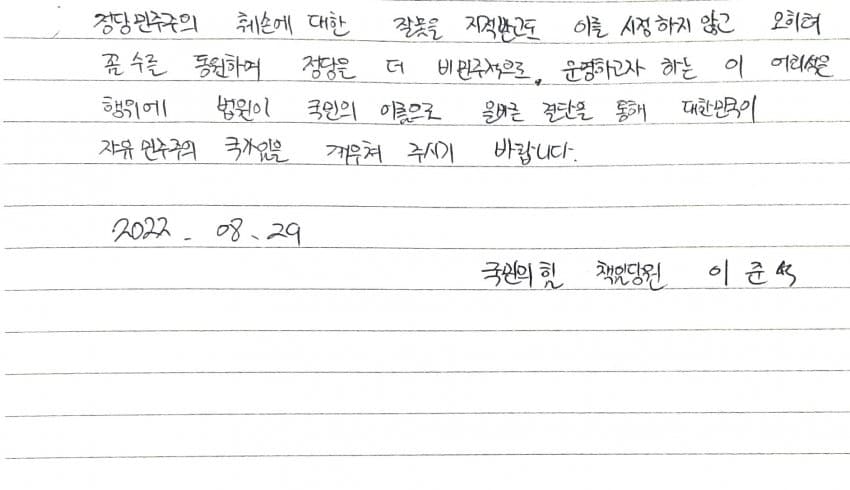 정당민주주의 훼손에 대한 잘못을 지적받고도 이를 시정하지 않고 오히려
꼼수를 동원하여 정당을 더 비민주적으로, 운영하고자 하는 이 어리석은
행위에 법원이 국민의 이름으로 올바른 결단을 통해 대한민국이
자유 민주주의 국가임을 깨우쳐 주시기 바랍니다.
2022. 08. 29
국민의힘 책임당원 이준석